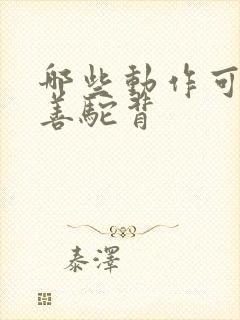 哪些動作可
善駝背
泰澤